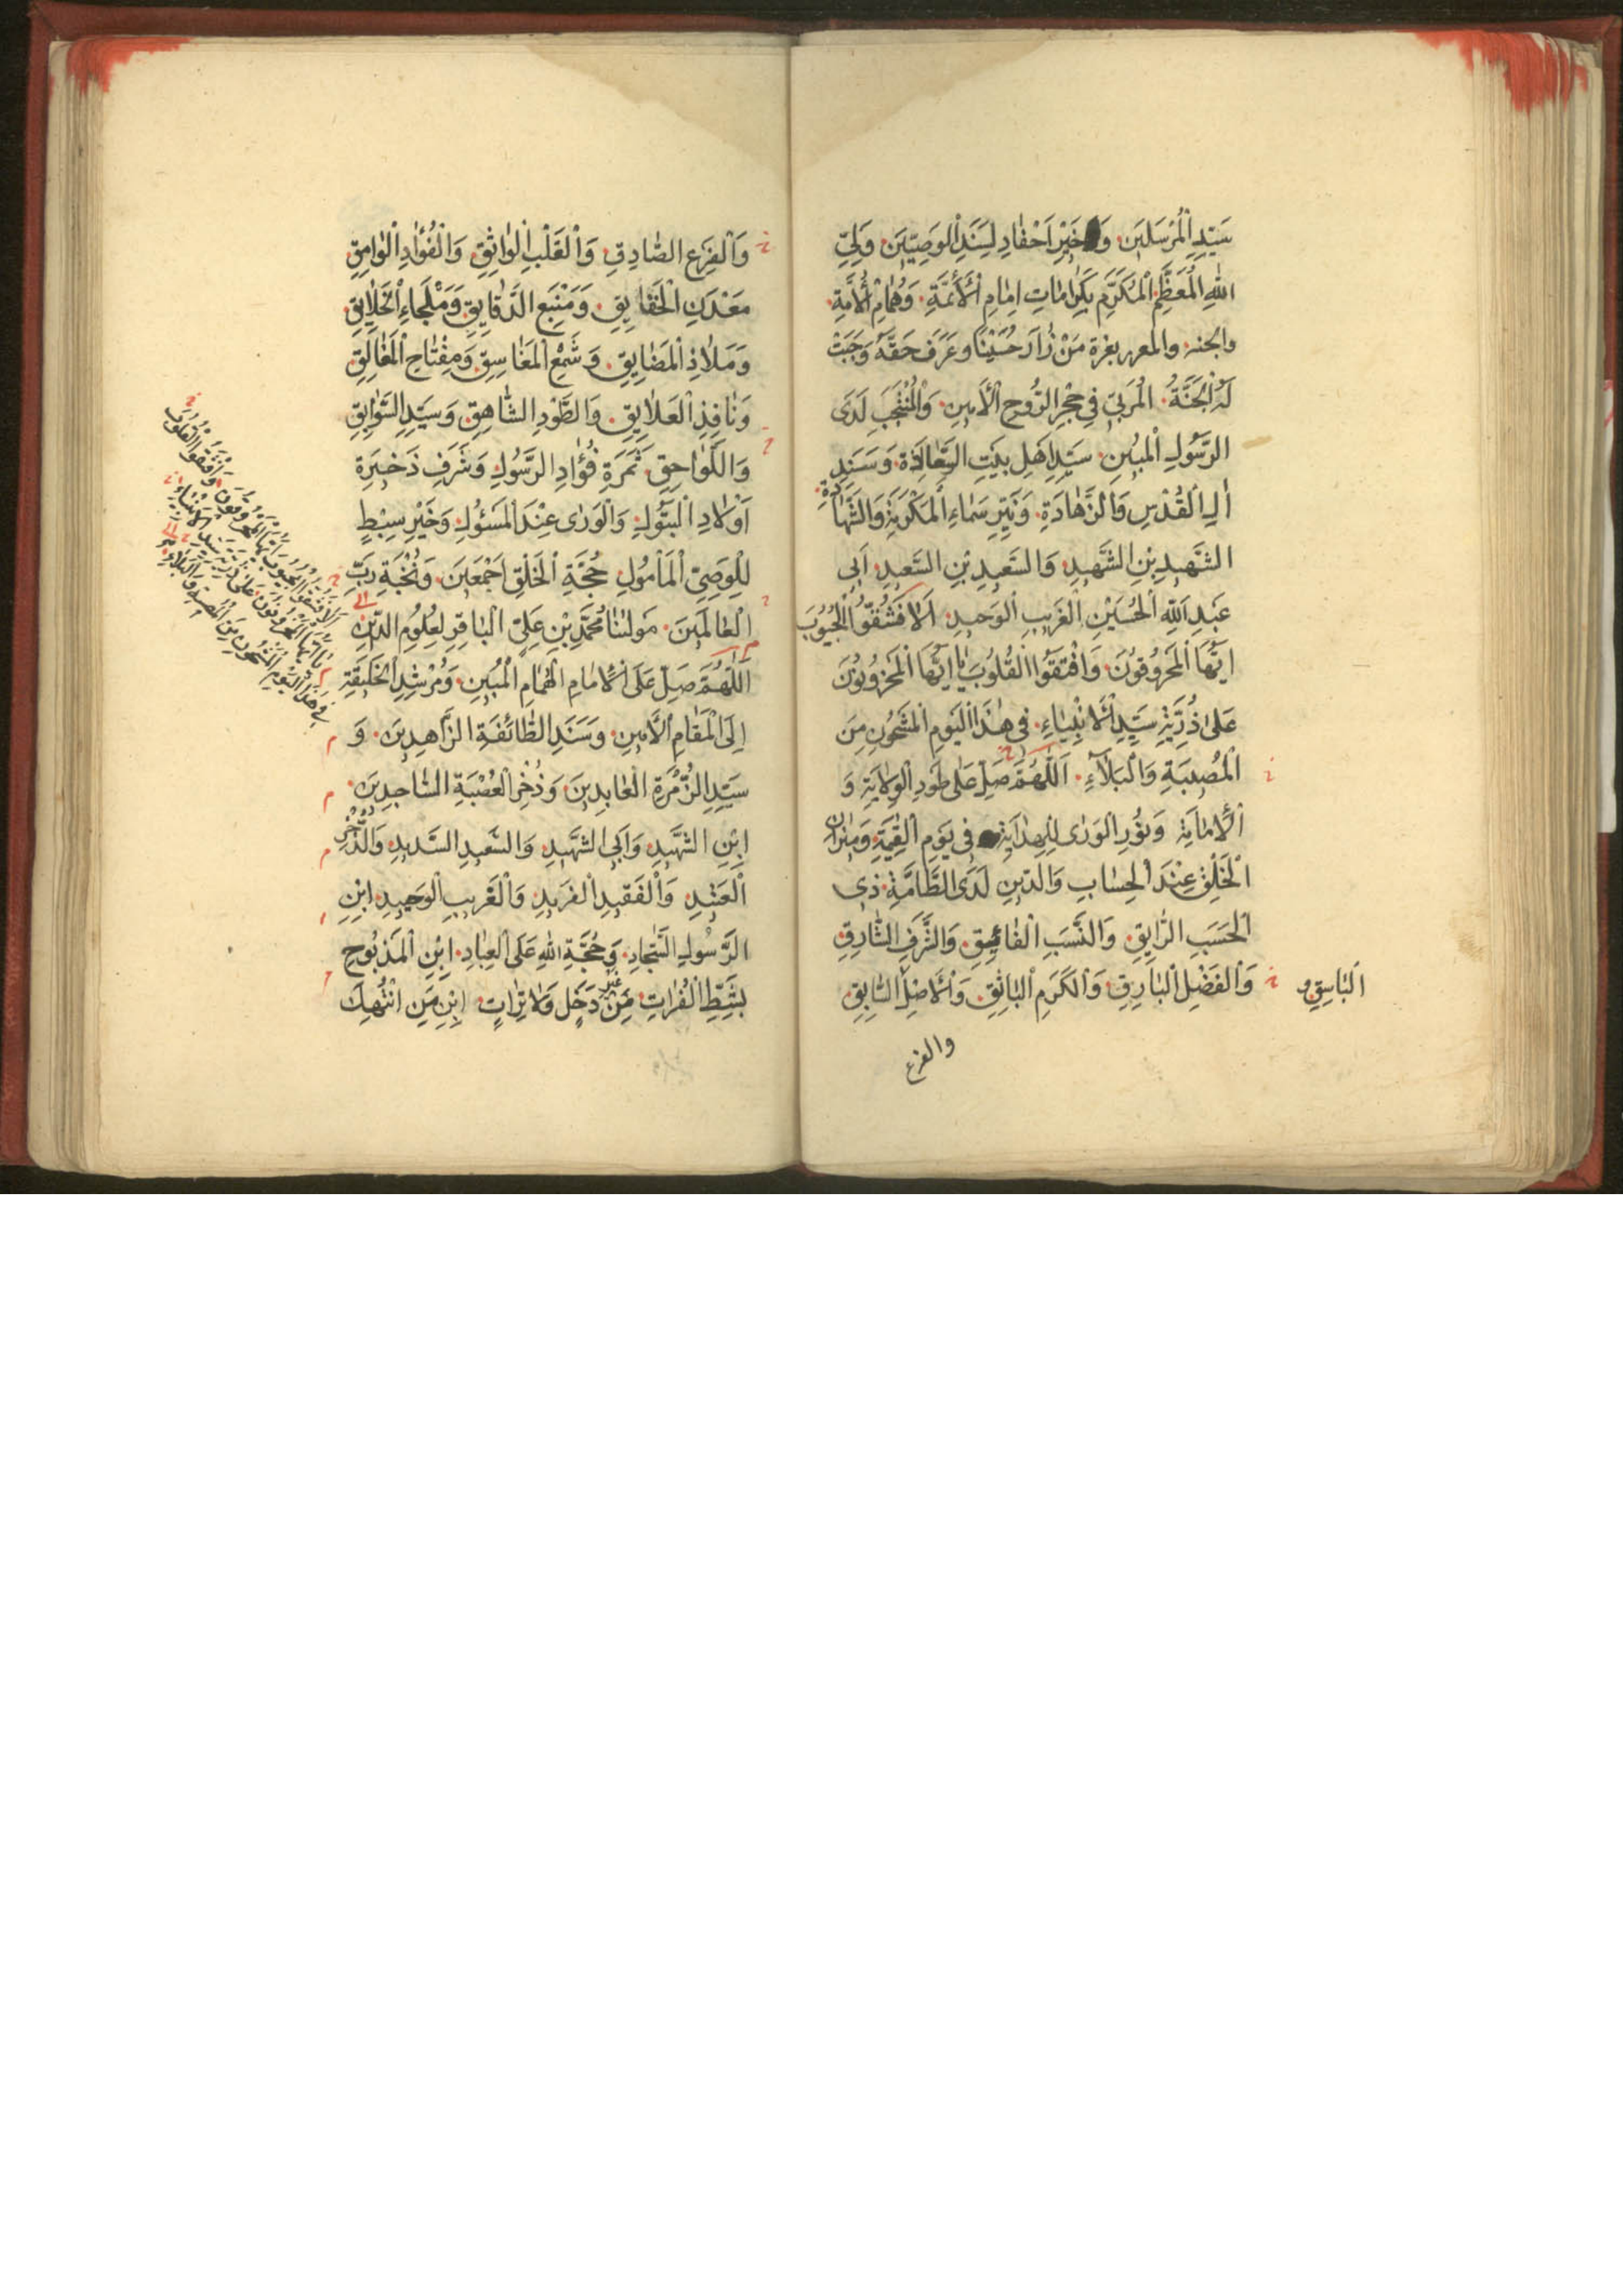 سَيِّدِ الْمُرْسَلِينَ وَخَيْرِ اَحْفَادٍ لِسَنَدِ الْوَصِيّيِنَ وَلِيِّ
اللهِ الْمُعَظَّمِ الْمُكَرَّمِ بِكَرَامَاتِ اِمَامِ الْاَئِمَّةِ وَهُمَامِ الْاُمَّةِ
مَنْ زَارَ حُسَيْنًا وعَرَفَ حَقَّهُ وَجَبَتْ
لَهُ الْجَنَّةُ الْمُرَبّىٰ فِي حِجْرِ الرُّوحِ الْاَمِينِ وَالْمُنْتَجَبِ لَدَى
الرَّسُولِ الْمُبِينِ سَيِّدِ اَهْلِ بَيْتِ السَّعَادَة وَسَنَدِ
اٰلِ الْقُدْسِ وَالزَّهَادَةِ وَنَيِّرِ سَمَاءِ الْمَكْرُمَةِ وَالشَّهَادَةِ
الشَّهِيدِ بْنِ الشَّهِيدِ وَالسَّعِيدِ بْنِ السَّعِيدِ اَبِي
عَبْدِ اللهِ الْحُسَيْنِ الْغَرِيبِ الْوَحِيدِ اَلَا فَشُقُّوا الْجُيُوبَ
اَيُّهَا الْمَحْرُوقُونَ وَافْتَقُوا الْقُلُوبَ يَا اَيُّهَا الْمَحْزُونُونَ
عَلىٰ ذُرِّيَّةِ سَيِّدِ الْاَنْبِيَاءِ فِي هٰذَا الْيَوْمِ الْمَشْحُونِ مِنَ
الْمُصِيبَةِ وَالْبَلَآءِ اَللّٰهُمَّ صَلِّ عَلىٰ طَوْدِ الْوِلَايَةِ وَ
الْاِمَامَةِ وَنُورِ الْوَرىٰ لِلْهِدَايَةِ فِي يَوْمِ الْقِيٰمَةِ وَمِيزَانِ
الْخَلْقِ عِنْدَ الْحِسَابِ وَالدِّينِ لَدَى الطَّامَّةِ ذِي
الْحَسَبِ الرَّايِقِ وَالنَّسَبِ الْفَائِقِ وَالشَّرَفِ الشَّارِقِ
وَالْفَضْلِ الْبَارِقِ وَالْكَرَمِ الْبَاثِقِ وَالْاَصْلِ السَّابِقِ
الْبَاسِقِ
والفرع
وَالْفَرْعِ الصَّادِقِ وَالْقَلْبِ الْوَاثِقِ وَالْفُؤَادِ الْوَامِقِ
مَعْدَنِ الْحَقَايِقِ وَمَنْبَعِ الدَّقَايِقِ وَمَلْجَاءِ الْخَلَايِقِ
وَمَلَاذِ الْمَضَايِقِ وَشَمْعِ الْمَغَاسِقِ وَمِفْتَاحِ الْمَغَالِقِ
وَنَافِذِ الْعَلَايِقِ وَالطَّوْدِ الشَّاهِقِ وَسَيِّدِ السَّوَابِقِ
وَاللَّوَاحِقِ ثَمَرَةِ فُؤَادِ الرَّسُولِ وَشَرَفِ ذَخِيرَةِ
اَوْلَادِ الْبَتُولِ وَالْوَرىٰ عِنْدَ الْمَسْؤُلِ وَخَيْرِ سِبْطٍ
لِلْوَصِيِّ الْمَاْمُولِ حُجَّةِ الْخَلْقِ اَجْمَعِينَ وَنُخْبَةِ رَبِّ
الْعَالَمِينَ مَوْلَانَا مُحَمَّدِ بْنِ عَلِيِّ الْبَاقِرِ لِعُلُومِ الدِّينِ
اَللّٰهُمَّ صَلِّ عَلَى الْاِمَامِ الْهُمَامِ الْمُبِينِ وَمُرْشِدِ الْخَلِيقَةِ
اِلَى الْمَقَامِ الْاَمِينِ وَسَنَدِ الطَّائِفَةِ الزَّاهِدِينَ وَ
سَيِّدِ الزُّمْرَةِ الْعَابِدِينَ وَذُخْرِ الْعُصْبَةِ السَّاجِدِينَ
ابْنِ الشَّهِيدِ وَاَبِي الشَّهِيدِ وَالسَّعِيدِ السَّدِيدِ وَالذُّخْرِ
الْعَتِيدِ وَالْفَقِيدِ الْفَرِيدِ وَالْغَرِيبِ الْوَحِيدِ ابْنِ
الرَّسُولِ السَّجَّادِ وَحُجَّةِ اللهِ عَلَى الْعِبَادِ ابْنِ الْمَذْبُوحِ
بِشَطِّ الْفُرَاتِ مِنْ غَيْرِ دَخَلٍ وَلَا تِرَاتٍ ابْنِ مَنِ انْتُهِكَ
اَلَا فَشُقُّوا الْجُيُوبَ اَيُّهَا الْمَحْرُوقُونَ وَافْتَقُوا الْقُلُوبَ
يَا اَيُّهَا الْمَحْزُونُونَ عَلىٰ ذُرِّيَّةِ سَيِّدِ الْاَنْبِيَاءِ
فِي هٰذَا الْيَوْمِ الْمَشْحُونِ مِنَ الْمُصِيبَةِ وَالْبَلَاءِ